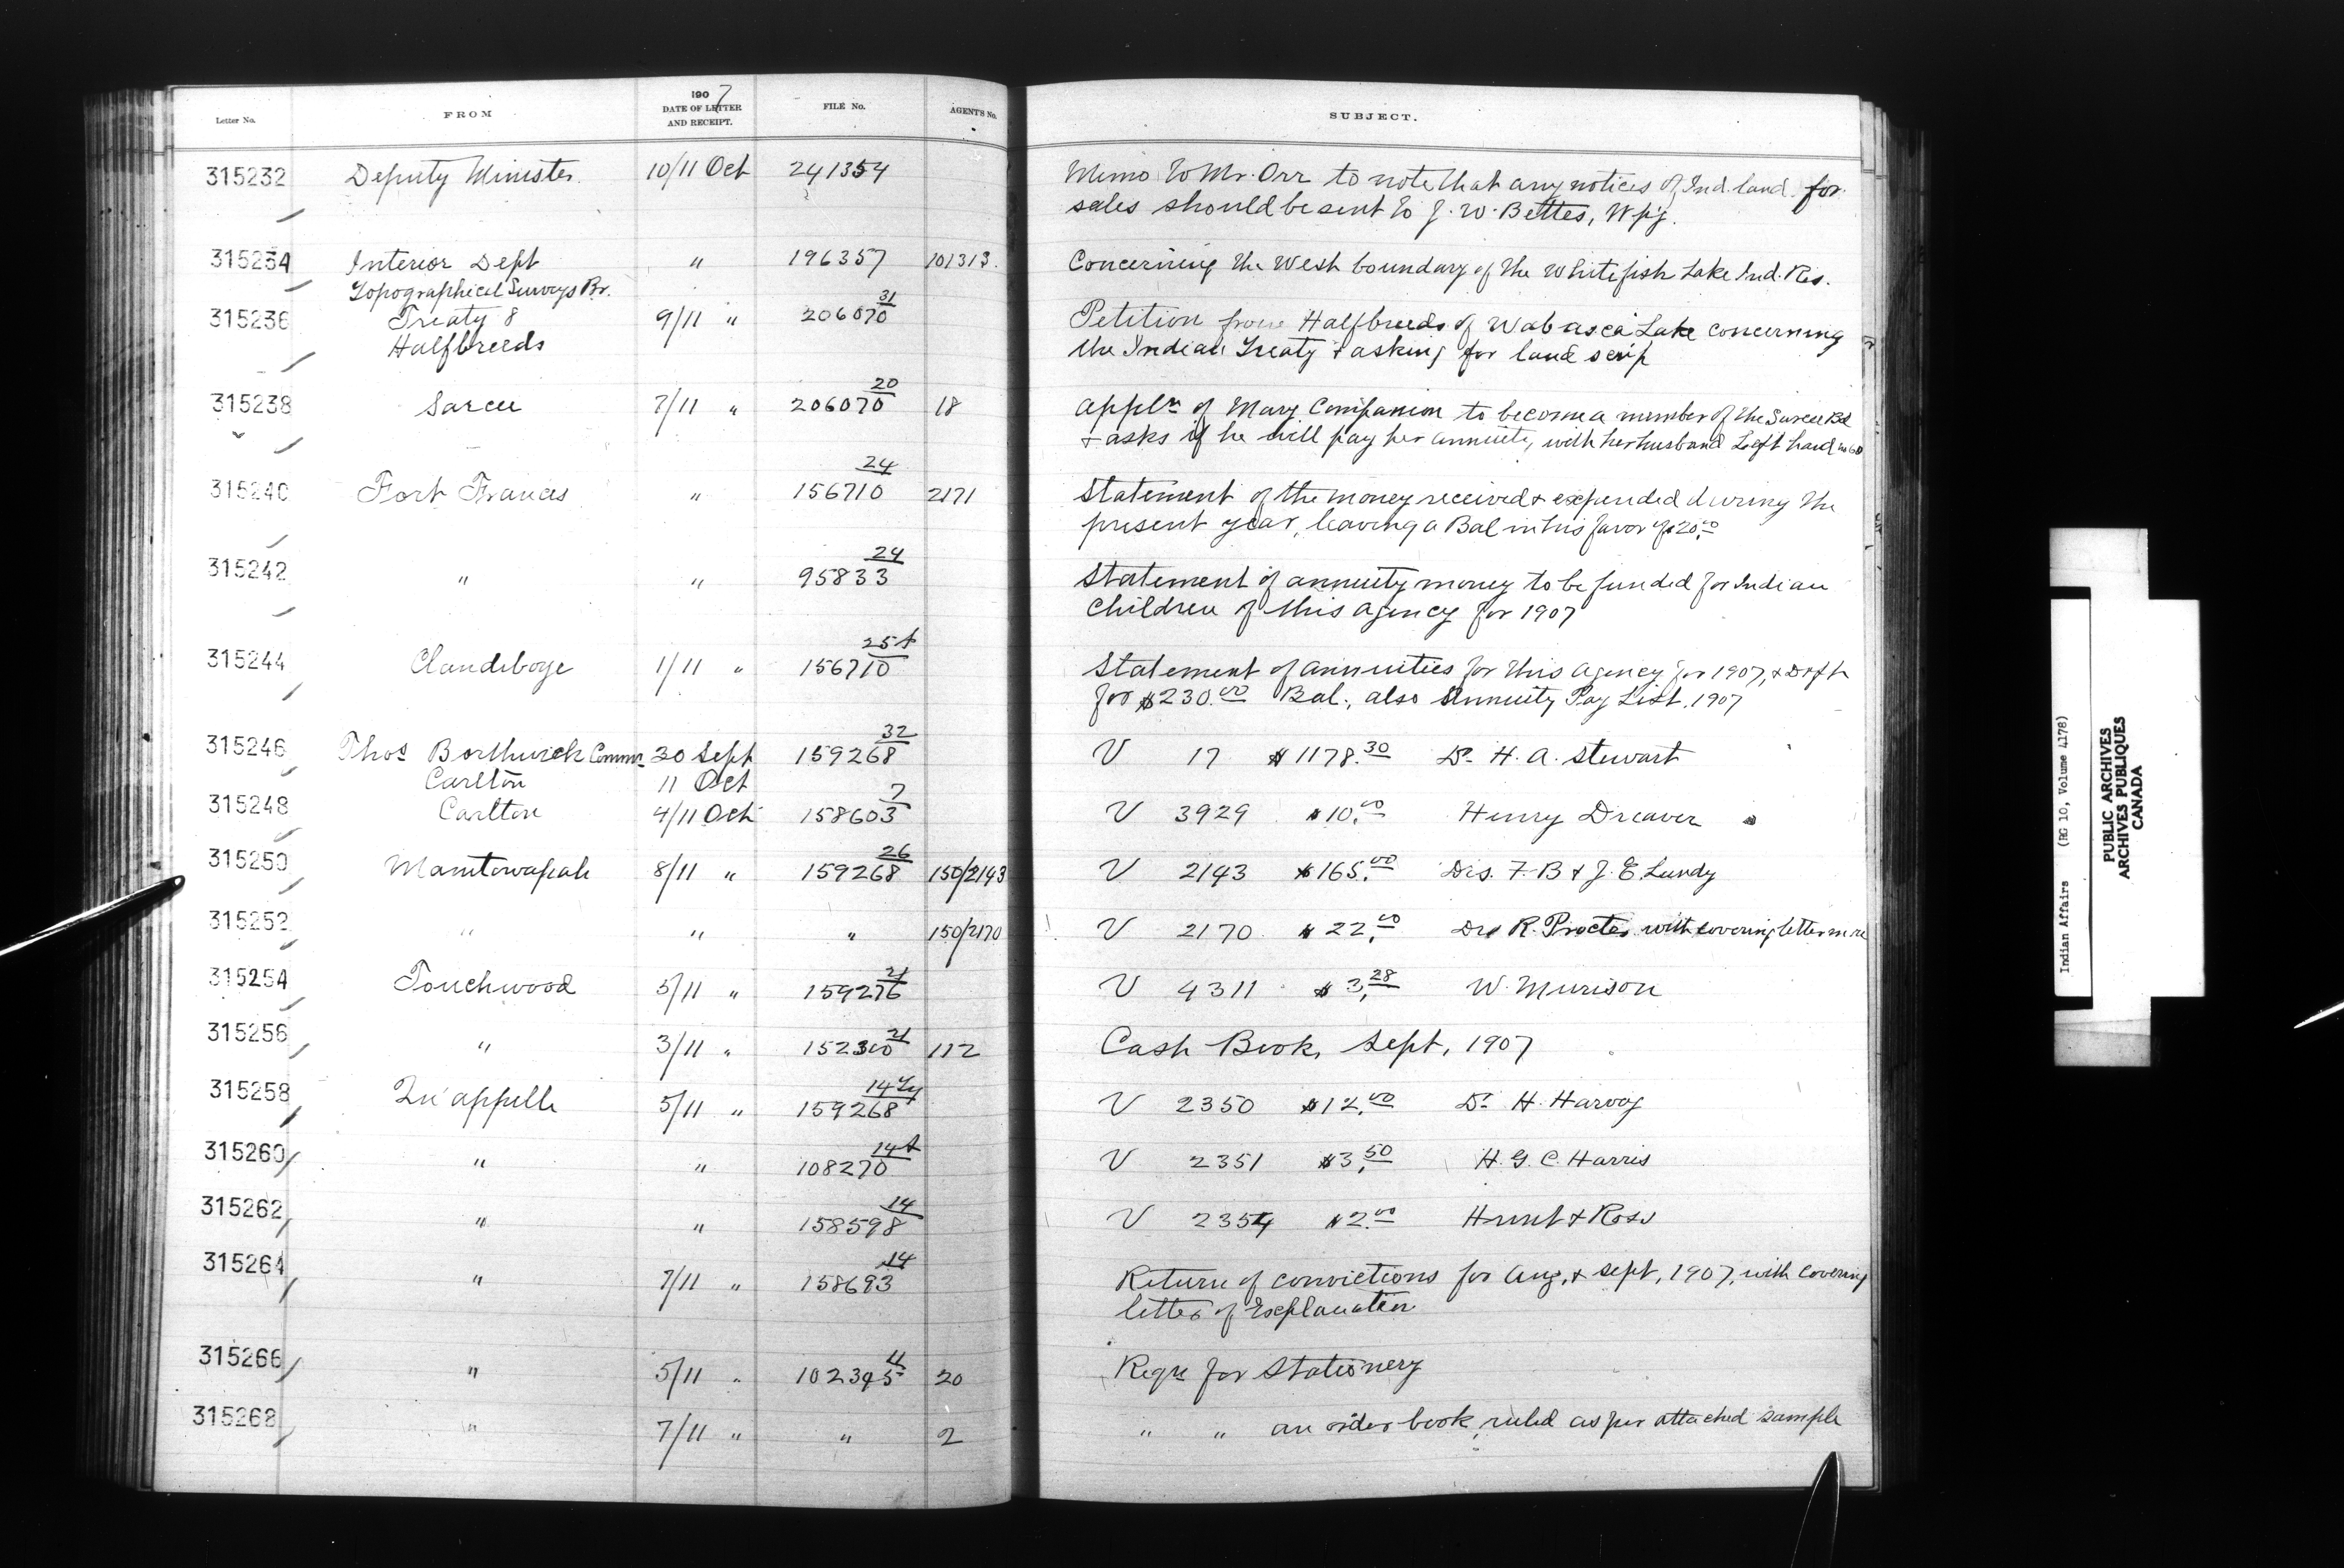 Letter No. FROM 1907 DATE OF LETTER AND RECEIPT. FILE No. AGENT'S No. SUBJECT.
315232 Deputy Minister 10/11 Oct 241354 Memo to Mr. Orr to note that any notices of Ind. land for
sales should be sent to J. W. Bettes, Wpg.
315234 Interior Dept " 196357 101313. Concerning the West boundary of the Whitefish Lake Ind. Res.
Topographical Surveys Br.
315236 Treaty 8 9/11 " 206070 31 Petition from Halfbreeds of Wabasca Lake concerning
Halfbreeds the Indian Treaty & asking for land scrip
315238 Sarcee 7/11 " 206070 20 18 Appln of Mary Companion to become a member of the Sarcee Bd
& asks if he will pay her annuity, with her husband Left hand
315240 Fort Frances " 156710 24 2171 Statement of the money received & expended during the
present year, leaving a Bal in his favor of $20.00
315242 " " 95833 24 Statement of annuity money to be funded for Indian
Children of this Agency for 1907
315244 Clandeboye 1/11 " 156710 25A Statement of annuities for this Agency for 1907, & Drft
for $230.00 Bal., also Annuity Pay List, 1907
315246 Thos Borthwick Commr 30 Sept 159268 32 V 17 $1178.30 Dr. H. A. Stewart
Carlton 11 Oct
315248 Carlton 4/11 Oct 158603 7 V 3929 $10.00 Henry Dreaver
315250 Manitowapah 8/11 " 159268 26 150/2143 V 2143 $165.00 Drs. F. B & J. E. Lundy
315252 " " " 150/2170 V 2170 $22.00 Dr R. Procter with covering letter
315254 Touchwood 5/11 " 159276 21 V 4311 $3.28 W. Murison
315256 " 3/11 " 152300 21 112 Cash Book, Sept, 1907
315258 Qu'appelle 5/11 " 159268 14 V 2350 $12.00 Dr. H. Harvey
315260 " " 108270 14A V 2351 $3.50 H. G. C. Harris
315262 " " 158598 14 V 2354 $2.00 Hunt & Ross
315264 " 7/11 " 158693 14 Return of convictions for Aug, & Sept, 1907, with covering
letter of Explanation
315266 " 5/11 " 102395 11 20 Reqn for Stationery
315268 " 7/11 " " 2 " " an order book ruled as per attached sample
Indian Affairs (RG 10, Volume 4178)
PUBLIC ARCHIVES
ARCHIVES PUBLIQUES
CANADA